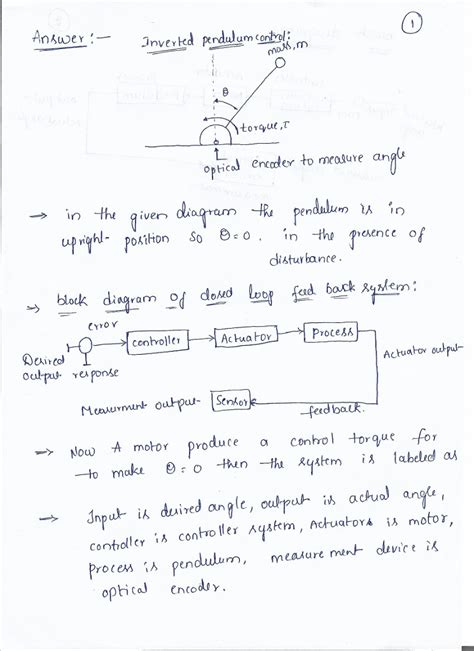 1
Answer :- Inverted pendulum control:
mass, m
θ
torque, τ
optical encoder to measure angle
→ in the given diagram the pendulum is in
upright- position so θ=0. in the presence of
disturbance.
→ block diagram of closed loop feed back system:
error
controller Actuator Process
Desired
output response
Actuator output
Measurment output- Sensor
feedback.
→ Now A motor produce a control torque for
to make θ=0 then the system is labeled as
→ Input is desired angle, output is actual angle,
controller is controller system, Actuators is motor,
process is pendulum, measurement device is
optical encoder.